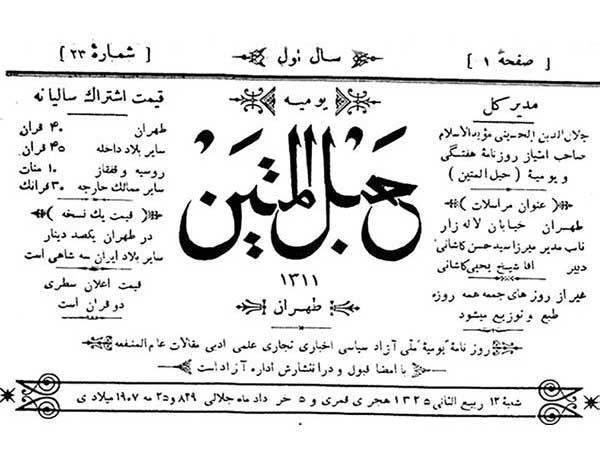 [ صفحهٔ ۱ ]
سال اول
[ شمارهٔ ۲۳ ]
مدیر کل
جلال الدین الحسینی مؤید الاسلام
صاحب امتیاز روزنامهٔ هفتگی
و یومیهٔ ( حبل المتین )
( عنوان مراسلات )
طهران خیابان لاله زار
نائب مدیر میرزا سید حسن کاشانی
دبیر آقا شیخ یحیی کاشانی
غیر از روز های جمعه همه روزه
طبع و توزیع میشود
یومیه
حبل المتین
۱۳۱۱
طهران
قیمت اشتراك سالیانه
طهران ۴۰ قران
سایر بلاد داخله ۴۵ قران
روسیه و قفقاز ۱۰ منات
سایر ممالك خارجه ۳۰ فرانك
( قیمت یك نسخه )
در طهران یکصد دینار
سایر بلاد ایران سه شاهی است
قیمت اعلان سطری
دو قران است
روزنامهٔ یومیهٔ ملی آزاد سیاسی اخباری تجاری علمی ادبی مقالات عام المنفعه
با امضا قبول و در انتشارش اداره آزاد است
شنبهٔ ۱۲ ربیع الثانی ۱۳۲۵ هجری قمری و ۵ خرداد ماه جلالی ۸۲۹ و ۲۵ مه ۱۹۰۷ میلادی